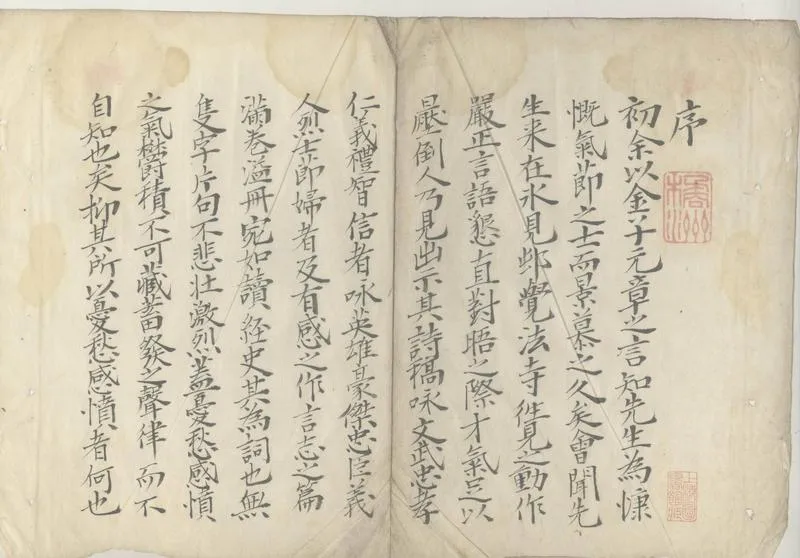 序
初余以金元章之言知先生為慷
慨氣莭之士而景慕之久矣會聞先
生来在氷見邨覺法寺徃見之動作
嚴正言語懇直對晤之際才氣足以
壓倒人乃見出示其詩稿咏文武忠孝
仁義禮智信者咏英雄豪傑忠臣義
人烈士莭婦者及有感之作言志之篇
滿卷溢冊宛如讀経史其為詞也無
隻字片句不悲壮激烈蓋憂愁感憤
之氣欝積不可藏蓄發之聲律而不
自知也矣抑其所以憂愁感憤者何也